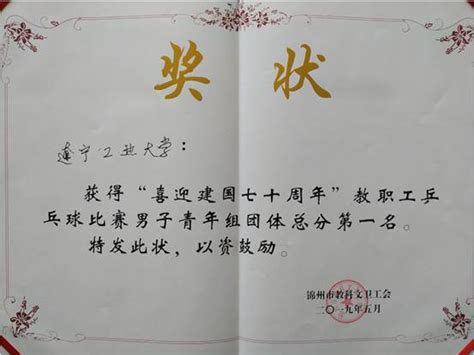 奖状
辽宁工业大学：
获得“喜迎建国七十周年”教职工乒
乓球比赛男子青年组团体总分第一名。
特发此状，以资鼓励。
锦州市教科文卫工会
二〇一九年五月